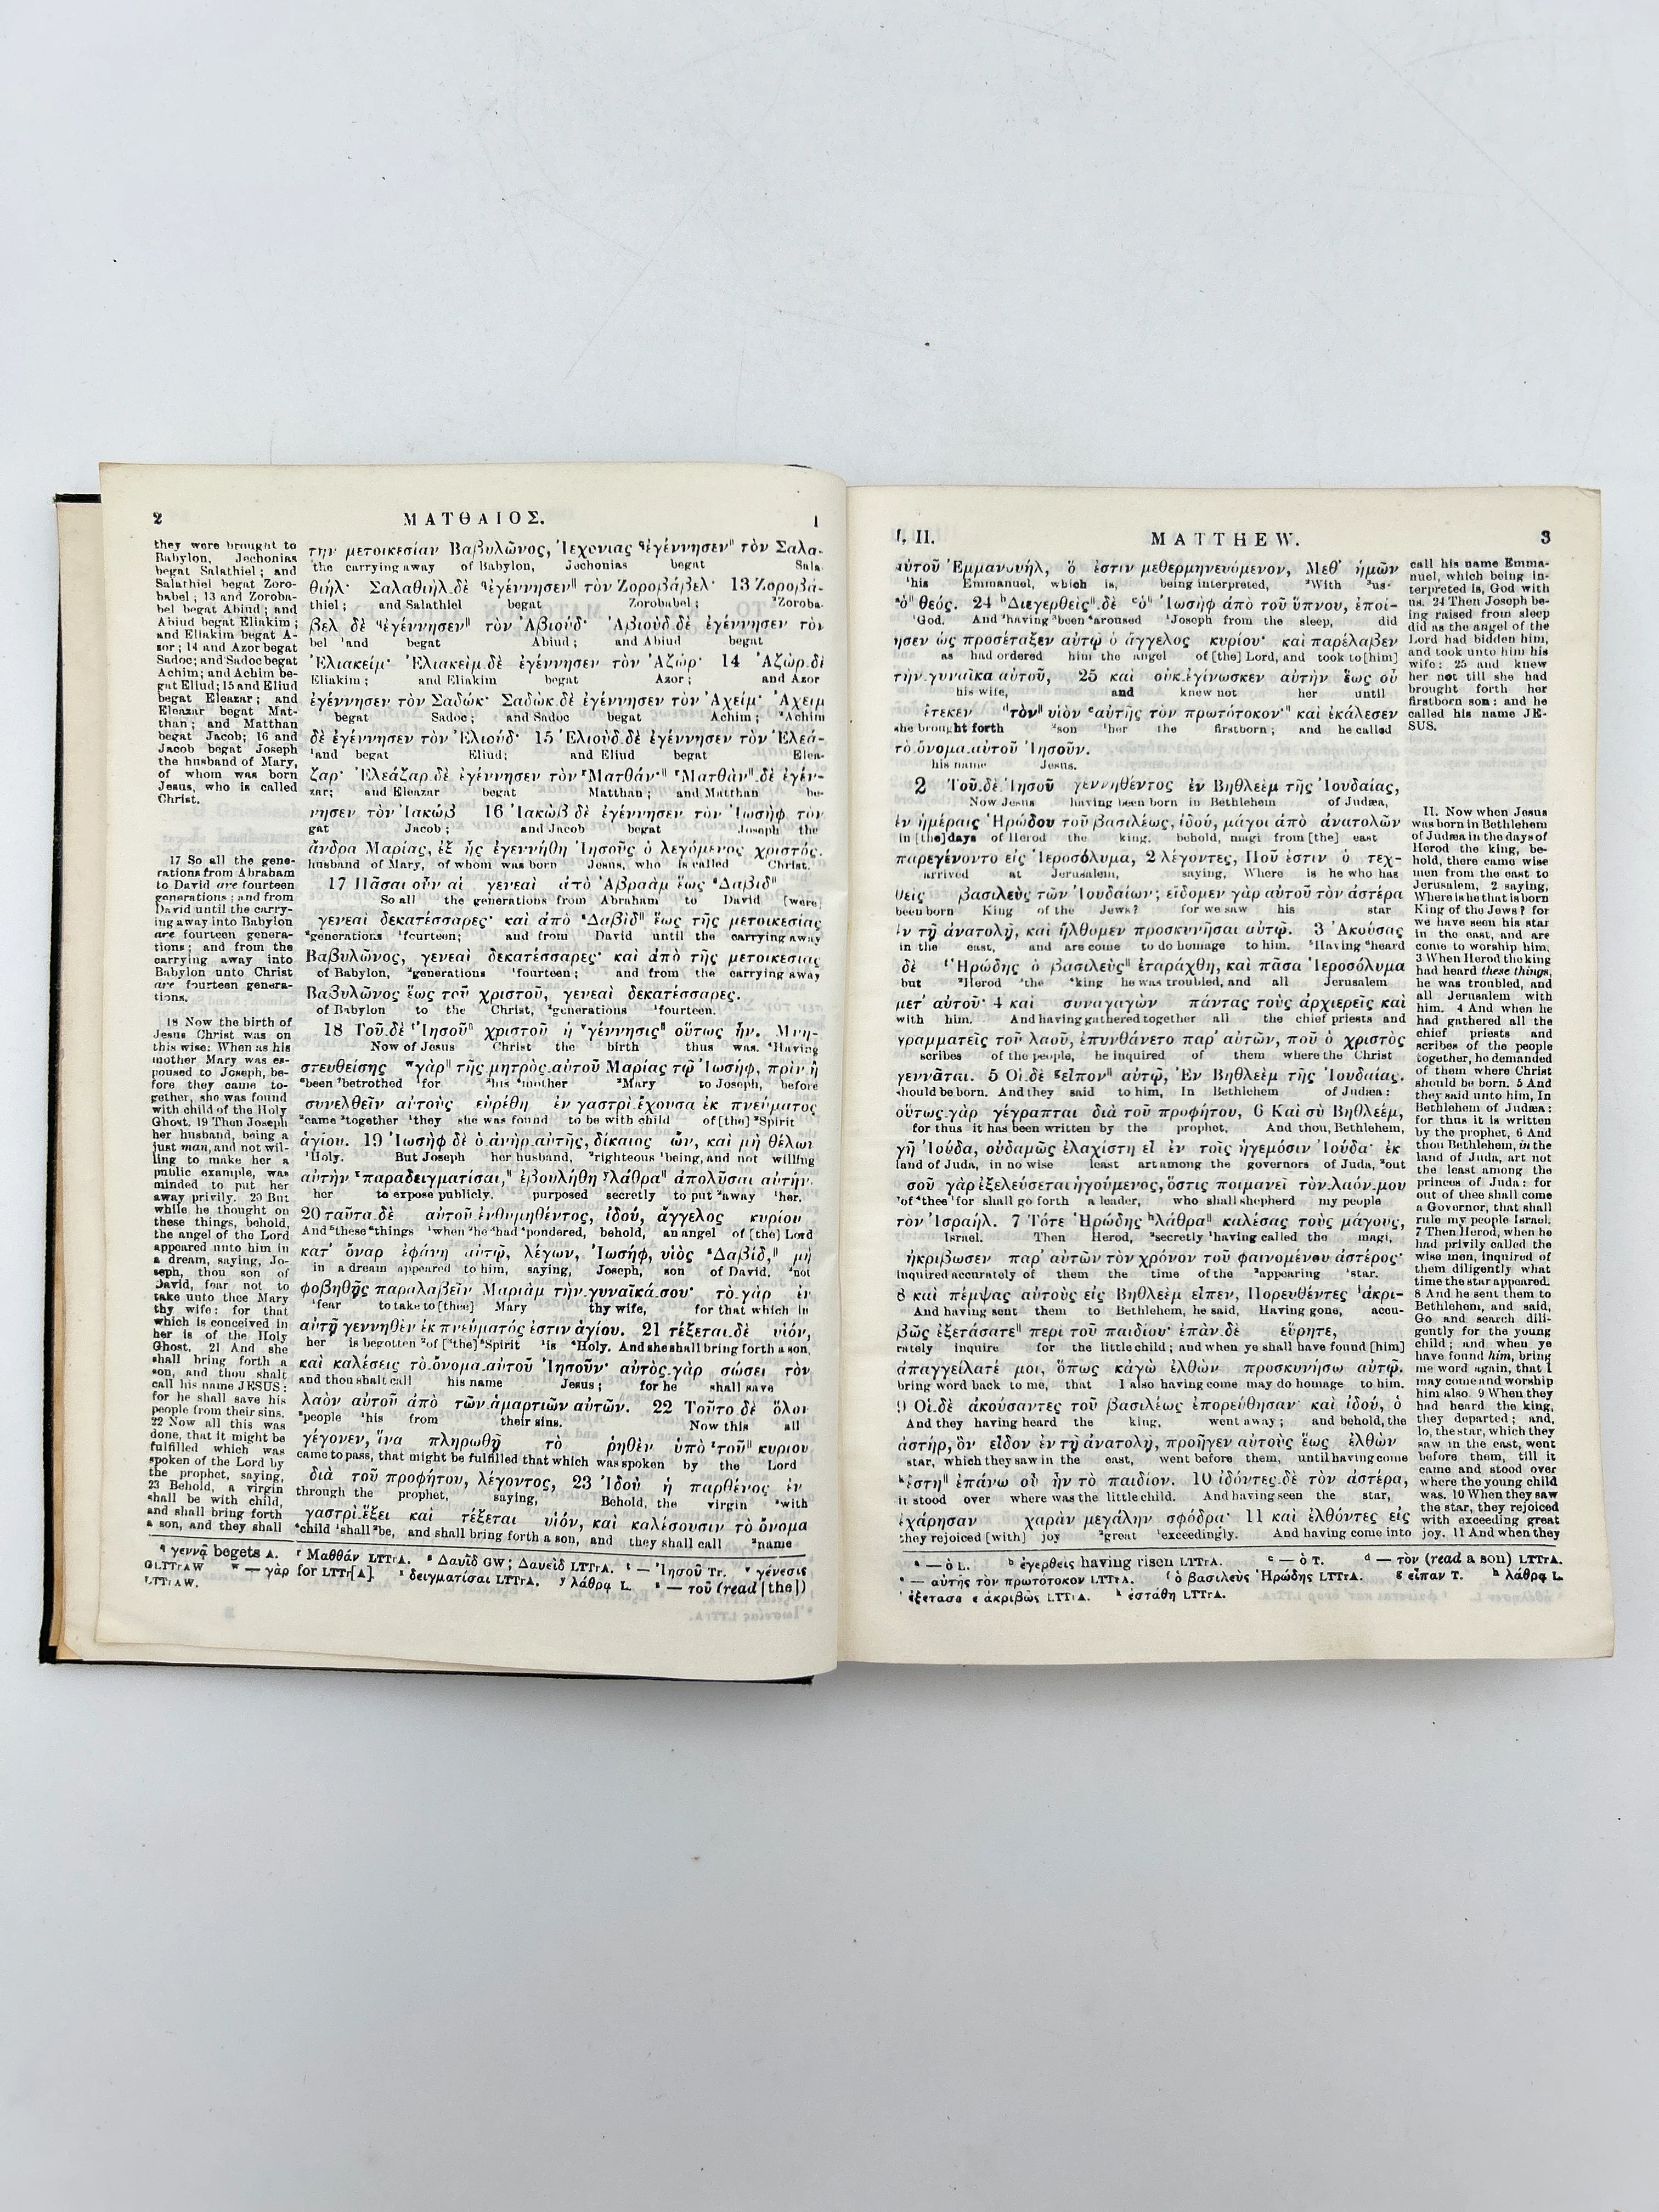 2 ΜΑΤΘΑΙΟΣ. I
they were brought to
Babylon, Jechonias
begat Salathiel; and
Salathiel begat Zoro-
babel; 13 and Zoroba-
bel begat Abiud; and
Abiud begat Eliakim;
and Eliakim begat A-
zor; 14 and Azor begat
Sadoc; and Sadoc begat
Achim; and Achim be-
gat Eliud; 15 and Eliud
begat Eleazar; and
Eleazar begat Mat-
than; and Matthan
begat Jacob; 16 and
Jacob begat Joseph
the husband of Mary,
of whom was born
Jesus, who is called
Christ.
17 So all the gene-
rations from Abraham
to David are fourteen
generations; and from
David until the carry-
ing away into Babylon
are fourteen genera-
tions; and from the
carrying away into
Babylon unto Christ
are fourteen genera-
tions.
18 Now the birth of
Jesus Christ was on
this wise: When as his
mother Mary was es-
poused to Joseph, be-
fore they came to-
gether, she was found
with child of the Holy
Ghost. 19 Then Joseph
her husband, being a
just man, and not wil-
ling to make her a
public example, was
minded to put her
away privily. 20 But
while he thought on
these things, behold,
the angel of the Lord
appeared unto him in
a dream, saying, Jo-
seph, thou son of
David, fear not to
take unto thee Mary
thy wife: for that
which is conceived in
her is of the Holy
Ghost. 21 And she
shall bring forth a
son, and thou shalt
call his name JESUS:
for he shall save his
people from their sins.
22 Now all this was
done, that it might be
fulfilled which was
spoken of the Lord by
the prophet, saying,
23 Behold, a virgin
shall be with child,
and shall bring forth
a son, and they shall
την μετοικεσίαν Βαβυλῶνος, Ἰεχονιας ᑫἐγέννησεν‖ τὸν Σαλα-
the carrying away of Babylon, Jechonias begat Sala-
θιήλ· Σαλαθιὴλ.δὲ ᑫἐγέννησεν‖ τὸν Ζοροβάβελ· 13 Ζοροβά-
thiel; and Salathiel begat Zorobabel; ²Zoroba-
βελ δὲ ᑫἐγέννησεν‖ τὸν Ἀβιούδ· Ἀβιοὺδ.δὲ ἐγέννησεν τὸν
bel ¹and begat Abiud; and Abiud begat
Ἐλιακείμ· Ἐλιακεὶμ.δὲ ἐγέννησεν τὸν Ἀζώρ· 14 Ἀζὼρ.δὲ
Eliakim; and Eliakim begat Azor; and Azor
ἐγέννησεν τὸν Σαδώκ· Σαδὼκ.δὲ ἐγέννησεν τὸν Ἀχείμ· Ἀχειμ
begat Sadoc; and Sadoc begat Achim; ²Achim
δὲ ἐγέννησεν τὸν Ἐλιούδ· 15 Ἐλιοὺδ.δὲ ἐγέννησεν τὸν Ἐλεά-
¹and begat Eliud; and Eliud begat Elea-
ζαρ· Ἐλεάζαρ.δὲ ἐγέννησεν τὸν ʳΜατθάν·‖ ʳΜατθὰν‖.δὲ ἐγέν-
zar; and Eleazar begat Matthan; and Matthan be-
νησεν τὸν Ἰακώβ 16 Ἰακὼβ δὲ ἐγέννησεν τὸν Ἰωσὴφ τὸν
gat Jacob; and Jacob begat Joseph the
ἄνδρα Μαρίας, ἐξ ἧς ἐγεννήθη Ἰησοῦς ὁ λεγόμενος χριστός.
husband of Mary, of whom was born Jesus, who is called Christ.
17 Πᾶσαι οὖν αἱ γενεαὶ ἀπὸ Ἀβραὰμ ἕως ˢΔαβὶδ‖
So all the generations from Abraham to David [were]
γενεαὶ δεκατέσσαρες· καὶ ἀπὸ ˢΔαβὶδ‖ ἕως τῆς μετοικεσίας
²generations ¹fourteen; and from David until the carrying away
Βαβυλῶνος, γενεαὶ δεκατέσσαρες· καὶ ἀπὸ τῆς μετοικεσίας
of Babylon, ²generations ¹fourteen; and from the carrying away
Βαβυλῶνος ἕως τοῦ χριστοῦ, γενεαὶ δεκατέσσαρες.
of Babylon to the Christ, ²generations ¹fourteen.
18 Τοῦ.δὲ ᵗἸησοῦ‖ χριστοῦ ἡ ᵛγέννησις‖ οὕτως ἦν. Μνη-
Now of Jesus Christ the birth thus was. ⁴Having
στευθείσης ʷγὰρ‖ τῆς μητρὸς.αὐτοῦ Μαρίας τῷ Ἰωσήφ, πρὶν ἢ
⁶been ⁷betrothed ¹for ²his ³mother ²Mary to Joseph, before
συνελθεῖν αὐτοὺς εὑρέθη ἐν γαστρὶ.ἔχουσα ἐκ πνεύματος
²came ³together ¹they she was found to be with child of [the] ²Spirit
ἁγίου. 19 Ἰωσὴφ δὲ ὁ.ἀνὴρ.αὐτῆς, δίκαιος ὤν, καὶ μὴ θέλων
¹Holy. But Joseph her husband, ²righteous ¹being, and not willing
αὐτὴν ˣπαραδειγματίσαι,‖ ἐβουλήθη ʸλάθρα‖ ἀπολῦσαι αὐτήν.
her to expose publicly, purposed secretly to put ²away ¹her.
20 ταῦτα.δὲ αὐτοῦ ἐνθυμηθέντος, ἰδού, ἄγγελος κυρίου
And ⁵these ⁶things ¹when ²he ³had ⁴pondered, behold, an angel of [the] Lord
κατ᾽ ὄναρ ἐφάνη αὐτῷ, λέγων, Ἰωσήφ, υἱὸς ˢΔαβίδ,‖ μὴ
in a dream appeared to him, saying, Joseph, son of David, ²not
φοβηθῇς παραλαβεῖν Μαριὰμ τὴν.γυναῖκά.σου· τὸ.γὰρ ἐν
¹fear to take to [thee] Mary thy wife, for that which in
αὐτῇ γεννηθὲν ἐκ πνεύματός ἐστιν ἁγίου. 21 τέξεται.δὲ υἱόν,
her is begotten ²of [³the] ⁵Spirit ¹is ⁴Holy. And she shall bring forth a son,
καὶ καλέσεις τὸ.ὄνομα.αὐτοῦ Ἰησοῦν· αὐτὸς.γὰρ σώσει τὸν
and thou shalt call his name Jesus; for he shall save
λαὸν αὐτοῦ ἀπὸ τῶν.ἁμαρτιῶν αὐτῶν. 22 Τοῦτο.δὲ ὅλον
²people ¹his from their sins. Now this all
γέγονεν, ἵνα πληρωθῇ τὸ ῥηθὲν ὑπὸ ᶻτοῦ‖ κυριου
came to pass, that might be fulfilled that which was spoken by the Lord
διὰ τοῦ προφήτου, λέγοντος, 23 Ἰδοὺ ἡ παρθένος ἐν
through the prophet, saying, Behold, the virgin ³with
γαστρὶ.ἕξει καὶ τέξεται υἱόν, καὶ καλέσουσιν τὸ ὄνομα
⁴child ¹shall ²be, and shall bring forth a son, and they shall call ²name
ᑫ γεννᾷ begets A. ʳ Μαθθάν LTTrA. ˢ Δαυὶδ GW; Δαυεὶδ LTTrA. ᵗ — Ἰησοῦ Tr. ᵛ γένεσις
GLTTrAW ʷ — γὰρ for LTTr[A]. ˣ δειγματίσαι LTTrA. ʸ λάθρᾳ L. ᶻ — τοῦ (read [the])
LTTrAW.
I, II. MATTHEW. 3
αὐτοῦ Ἐμμανουήλ, ὅ ἐστιν μεθερμηνευόμενον, Μεθ᾽ ἡμῶν
¹his Emmanuel, which is, being interpreted, ²With ³us
ᵃὁ‖ θεός. 24 ᵇΔιεγερθεὶς‖.δὲ ᶜὁ‖ Ἰωσὴφ ἀπὸ τοῦ ὕπνου, ἐποί-
¹God. And ²having ³been ⁴aroused ¹Joseph from the sleep, did
ησεν ὡς προσέταξεν αὐτῷ ὁ ἄγγελος κυρίου· καὶ παρέλαβεν
as had ordered him the angel of [the] Lord, and took to [him]
τὴν.γυναῖκα αὐτοῦ, 25 καὶ οὐκ.ἐγίνωσκεν αὐτὴν ἕως οὗ
his wife, and knew not her until
ἔτεκεν ᵈτὸν‖ υἱὸν ᵉαὐτῆς τὸν πρωτότοκον·‖ καὶ ἐκάλεσεν
she brought forth ²son ¹her the firstborn; and he called
τὸ.ὄνομα.αὐτοῦ Ἰησοῦν.
his name Jesus.
2 Τοῦ.δὲ Ἰησοῦ γεννηθέντος ἐν Βηθλεὲμ τῆς Ἰουδαίας,
Now Jesus having been born in Bethlehem of Judæa,
ἐν ἡμέραις Ἡρώδου τοῦ βασιλέως, ἰδού, μάγοι ἀπὸ ἀνατολῶν
in [the] days of Herod the king, behold, magi from [the] east
παρεγένοντο εἰς Ἱεροσόλυμα, 2 λέγοντες, Ποῦ ἐστιν ὁ τεχ-
arrived at Jerusalem, saying, Where is he who has
θεὶς βασιλεὺς τῶν Ἰουδαίων; εἴδομεν γὰρ αὐτοῦ τὸν ἀστέρα
been born King of the Jews? for we saw his star
ἐν τῇ ἀνατολῇ, καὶ ἤλθομεν προσκυνῆσαι αὐτῷ. 3 Ἀκούσας
in the east, and are come to do homage to him. ⁵Having ⁶heard
δὲ ᶠἩρώδης ὁ βασιλεὺς‖ ἐταράχθη, καὶ πᾶσα Ἱεροσόλυμα
but ²Herod ³the ⁴king he was troubled, and all Jerusalem
μετ᾽ αὐτοῦ· 4 καὶ συναγαγὼν πάντας τοὺς ἀρχιερεῖς καὶ
with him. And having gathered together all the chief priests and
γραμματεῖς τοῦ λαοῦ, ἐπυνθάνετο παρ᾽ αὐτῶν, ποῦ ὁ χριστὸς
scribes of the people, he inquired of them where the Christ
γεννᾶται. 5 Οἱ.δὲ ᵍεἶπον‖ αὐτῷ, Ἐν Βηθλεὲμ τῆς Ἰουδαίας.
should be born. And they said to him, In Bethlehem of Judæa:
οὕτως.γὰρ γέγραπται διὰ τοῦ προφήτου, 6 Καὶ σὺ Βηθλεέμ,
for thus it has been written by the prophet, And thou, Bethlehem,
γῆ Ἰούδα, οὐδαμῶς ἐλαχίστη εἶ ἐν τοῖς ἡγεμόσιν Ἰούδα· ἐκ
land of Juda, in no wise least art among the governors of Juda, ²out
σοῦ γὰρ ἐξελεύσεται ἡγούμενος, ὅστις ποιμανεῖ τὸν.λαόν.μου
³of ⁴thee ¹for shall go forth a leader, who shall shepherd my people
τὸν Ἰσραήλ. 7 Τότε Ἡρώδης ʰλάθρα‖ καλέσας τοὺς μάγους,
Israel. Then Herod, ²secretly ¹having called the magi,
ἠκρίβωσεν παρ᾽ αὐτῶν τὸν χρόνον τοῦ φαινομένου ἀστέρος·
inquired accurately of them the time of the ²appearing ¹star.
8 καὶ πέμψας αὐτοὺς εἰς Βηθλεὲμ εἶπεν, Πορευθέντες ⁱἀκρι-
And having sent them to Bethlehem, he said, Having gone, accu-
βῶς ἐξετάσατε‖ περὶ τοῦ παιδίου· ἐπὰν.δὲ εὕρητε,
rately inquire for the little child; and when ye shall have found [him]
ἀπαγγείλατέ μοι, ὅπως κἀγὼ ἐλθὼν προσκυνήσω αὐτῷ.
bring word back to me, that I also having come may do homage to him.
9 Οἱ.δὲ ἀκούσαντες τοῦ βασιλέως ἐπορεύθησαν· καὶ ἰδού, ὁ
And they having heard the king, went away; and behold, the
ἀστήρ, ὃν εἶδον ἐν τῇ ἀνατολῇ, προῆγεν αὐτοὺς ἕως ἐλθὼν
star, which they saw in the east, went before them, until having come
ᵏἔστη‖ ἐπάνω οὗ ἦν τὸ παιδίον. 10 ἰδόντες.δὲ τὸν ἀστέρα,
it stood over where was the little child. And having seen the star,
ἐχάρησαν χαρὰν μεγάλην σφόδρα· 11 καὶ ἐλθόντες εἰς
they rejoiced [with] joy ²great ¹exceedingly. And having come into
call his name Emma-
nuel, which being in-
terpreted is, God with
us. 24 Then Joseph be-
ing raised from sleep
did as the angel of the
Lord had bidden him,
and took unto him his
wife: 25 and knew
her not till she had
brought forth her
firstborn son: and he
called his name JE-
SUS.
II. Now when Jesus
was born in Bethlehem
of Judæa in the days of
Herod the king, be-
hold, there came wise
men from the east to
Jerusalem, 2 saying,
Where is he that is born
King of the Jews? for
we have seen his star
in the east, and are
come to worship him.
3 When Herod the king
had heard these things,
he was troubled, and
all Jerusalem with
him. 4 And when he
had gathered all the
chief priests and
scribes of the people
together, he demanded
of them where Christ
should be born. 5 And
they said unto him, In
Bethlehem of Judæa:
for thus it is written
by the prophet, 6 And
thou Bethlehem, in the
land of Juda, art not
the least among the
princes of Juda: for
out of thee shall come
a Governor, that shall
rule my people Israel.
7 Then Herod, when he
had privily called the
wise men, inquired of
them diligently what
time the star appeared.
8 And he sent them to
Bethlehem, and said,
Go and search dili-
gently for the young
child; and when ye
have found him, bring
me word again, that I
may come and worship
him also. 9 When they
had heard the king,
they departed; and,
lo, the star, which they
saw in the east, went
before them, till it
came and stood over
where the young child
was. 10 When they saw
the star, they rejoiced
with exceeding great
joy. 11 And when they
ᵃ — ὁ L. ᵇ ἐγερθεὶς having risen LTTrA. ᶜ — ὁ T. ᵈ — τὸν (read a son) LTTrA.
ᵉ — αὐτῆς τὸν πρωτότοκον LTTrA. ᶠ ὁ βασιλεὺς Ἡρώδης LTTrA. ᵍ εἶπαν T. ʰ λάθρᾳ L.
ⁱ ἐξετάσατε ἀκριβῶς LTTrA. ᵏ ἐστάθη LTTrA.